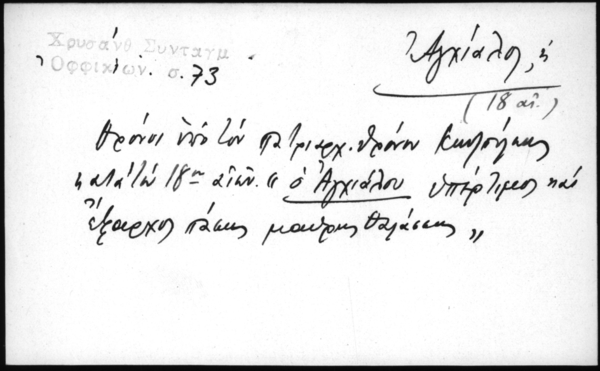 Χρυσάνθ Συνταγμ.
Ὀφφικίων. σ. 73
Ἀγχίαλος, ἡ
(18 αἰ.)
θρόνοι ὑπὸ τὸν πατριαρχ. θρόνον Κωνσ/πόλεως
κατὰ τὸν 18ον αἰῶν. "ὁ Ἀγχιάλου ὑπέρτιμος καὶ
ἔξαρχος πάσης μαύρης θαλάσσης"